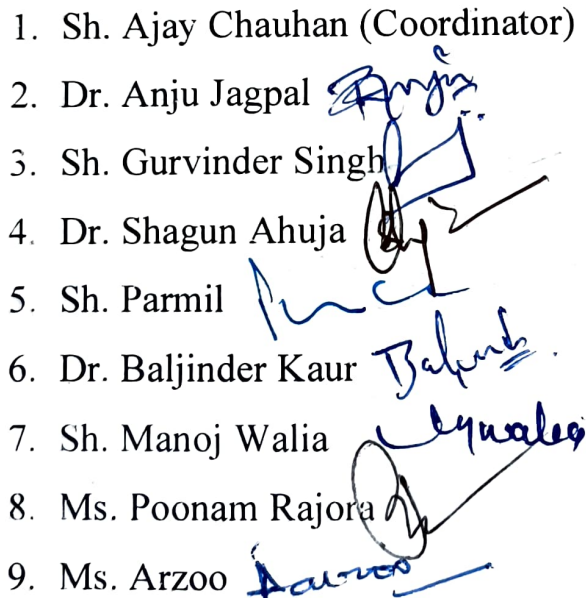 1. Sh. Ajay Chauhan (Coordinator)
2. Dr. Anju Jagpal Anju
3. Sh. Gurvinder Singh
4. Dr. Shagun Ahuja
5. Sh. Parmil
6. Dr. Baljinder Kaur
7. Sh. Manoj Walia
8. Ms. Poonam Rajora
9. Ms. Arzoo Aarzoo